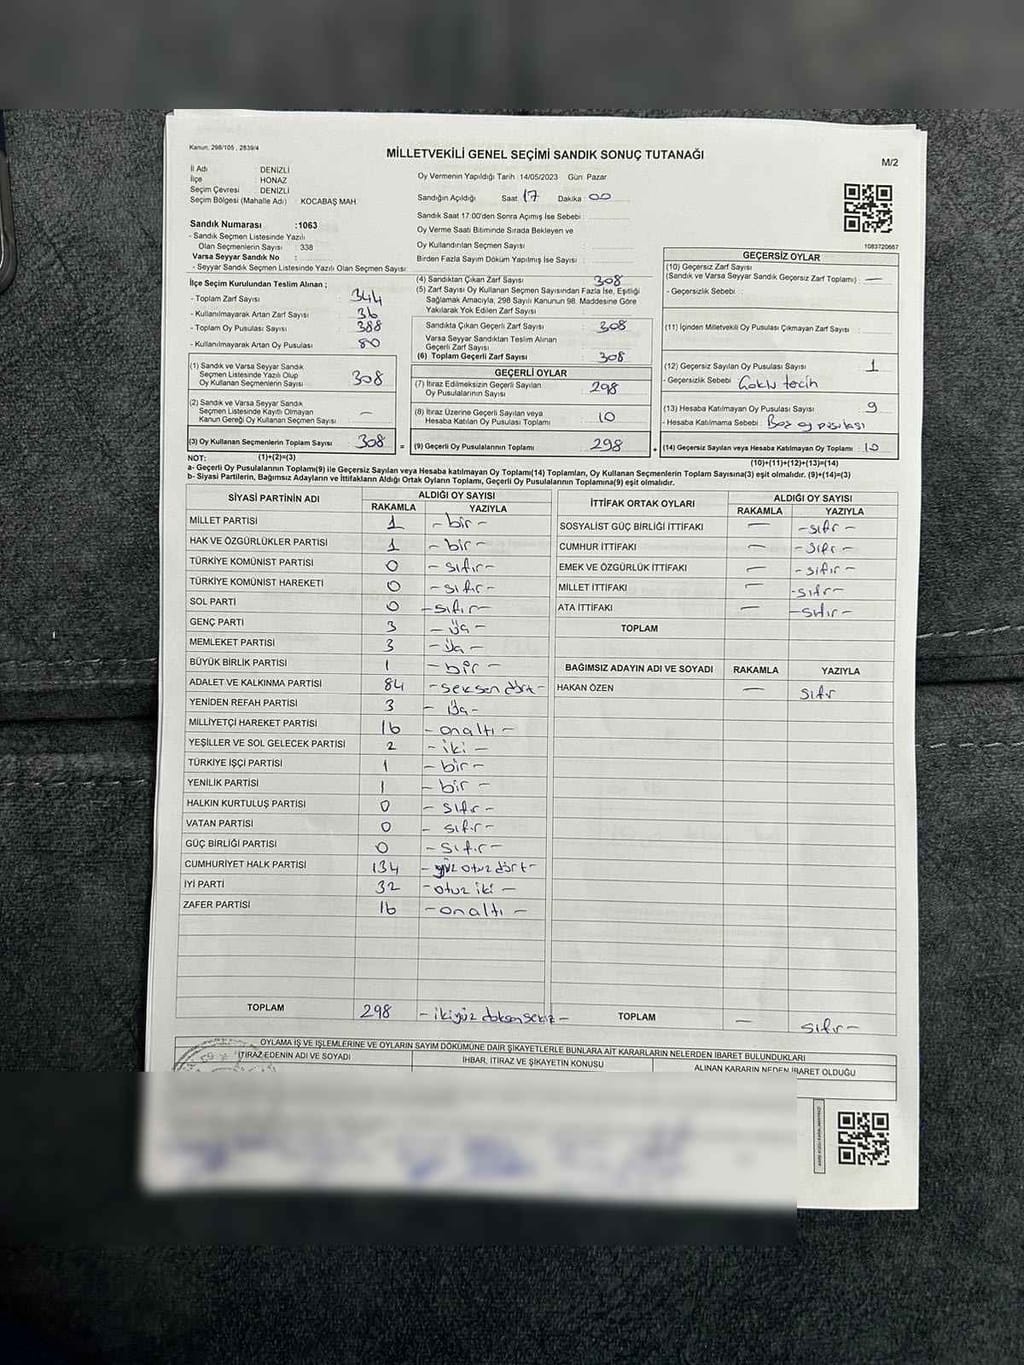 Kanun, 298/105 , 2839/4
MİLLETVEKİLİ GENEL SEÇİMİ SANDIK SONUÇ TUTANAĞI
M/2
İl Adı DENİZLİ
İlçe HONAZ
Seçim Çevresi DENİZLİ
Seçim Bölgesi (Mahalle Adı) : KOCABAŞ MAH.
Oy Vermenin Yapıldığı Tarih :14/05/2023 Gün: Pazar
Sandığın Açıldığı Saat 17 Dakika : 00
Sandık Saat 17:00'den Sonra Açılmış İse Sebebi :
Oy Verme Saati Bitiminde Sırada Bekleyen ve
Oy Kullandırılan Seçmen Sayısı :
Birden Fazla Sayım Döküm Yapılmış İse Sayısı :
Sandık Numarası :1063
- Sandık Seçmen Listesinde Yazılı
Olan Seçmenlerin Sayısı : 338
Varsa Seyyar Sandık No :
- Seyyar Sandık Seçmen Listesinde Yazılı Olan Seçmen Sayısı :
1083720667
İlçe Seçim Kurulundan Teslim Alınan ;
- Toplam Zarf Sayısı : 344
- Kullanılmayarak Artan Zarf Sayısı : 36
- Toplam Oy Pusulası Sayısı : 388
- Kullanılmayarak Artan Oy Pusulası : 80
(1) Sandık ve Varsa Seyyar Sandık
Seçmen Listesinde Yazılı Olup
Oy Kullanan Seçmenlerin Sayısı 308
(2) Sandık ve Varsa Seyyar Sandık
Seçmen Listesinde Kayıtlı Olmayan
Kanun Gereği Oy Kullanan Seçmen Sayısı : —
(3) Oy Kullanan Seçmenlerin Toplam Sayısı 308 =
(4) Sandıktan Çıkan Zarf Sayısı : 308
(5) Zarf Sayısı Oy Kullanan Seçmen Sayısından Fazla İse, Eşitliği
Sağlamak Amacıyla, 298 Sayılı Kanunun 98. Maddesine Göre
Yakılarak Yok Edilen Zarf Sayısı :
Sandıkta Çıkan Geçerli Zarf Sayısı : 308
Varsa Seyyar Sandıktan Teslim Alınan
Geçerli Zarf Sayısı :
(6) Toplam Geçerli Zarf Sayısı : 308
GEÇERLİ OYLAR
(7) İtiraz Edilmeksizin Geçerli Sayılan
Oy Pusulalarının Sayısı : 298
(8) İtiraz Üzerine Geçerli Sayılan veya
Hesaba Katılan Oy Pusulası Toplamı : 10
(9) Geçerli Oy Pusulalarının Toplamı : 298 +
GEÇERSİZ OYLAR
(10) Geçersiz Zarf Sayısı
(Sandık ve Varsa Seyyar Sandık Geçersiz Zarf Toplamı) : —
- Geçersizlik Sebebi :
(11) İçinden Milletvekili Oy Pusulası Çıkmayan Zarf Sayısı :
(12) Geçersiz Sayılan Oy Pusulası Sayısı : 1
- Geçersizlik Sebebi : Çoklu tecih
(13) Hesaba Katılmayan Oy Pusulası Sayısı : 9
- Hesaba Katılmama Sebebi : Boş oy pusılası
(14) Geçersiz Sayılan veya Hesaba Katılmayan Oy Toplamı : 10
NOT: (1)+(2)=(3)
(10)+(11)+(12)+(13)=(14)
a- Geçerli Oy Pusulalarının Toplamı(9) ile Geçersiz Sayılan veya Hesaba katılmayan Oy Toplamı(14) Toplamları, Oy Kullanan Seçmenlerin Toplam Sayısına(3) eşit olmalıdır. (9)+(14)=(3)
b- Siyasi Partilerin, Bağımsız Adayların ve İttifakların Aldığı Ortak Oyların Toplamı, Geçerli Oy Pusulalarının Toplamına(9) eşit olmalıdır.
SİYASİ PARTİNİN ADI ALDIĞI OY SAYISI
RAKAMLA YAZIYLA
MİLLET PARTİSİ 1 - bir -
HAK VE ÖZGÜRLÜKLER PARTİSİ 1 - bir -
TÜRKİYE KOMÜNİST PARTİSİ 0 - sıfır -
TÜRKİYE KOMÜNİST HAREKETİ 0 - sıfır -
SOL PARTİ 0 - sıfır -
GENÇ PARTİ 3 - Üç -
MEMLEKET PARTİSİ 3 - Üç -
BÜYÜK BİRLİK PARTİSİ 1 - bir -
ADALET VE KALKINMA PARTİSİ 84 - seksen dört -
YENİDEN REFAH PARTİSİ 3 - Üç -
MİLLİYETÇİ HAREKET PARTİSİ 16 - onaltı -
YEŞİLLER VE SOL GELECEK PARTİSİ 2 - iki -
TÜRKİYE İŞÇİ PARTİSİ 1 - bir -
YENİLİK PARTİSİ 1 - bir -
HALKIN KURTULUŞ PARTİSİ 0 - sıfır -
VATAN PARTİSİ 0 - sıfır -
GÜÇ BİRLİĞİ PARTİSİ 0 - sıfır -
CUMHURİYET HALK PARTİSİ 134 - yüz otuz dört -
İYİ PARTİ 32 - otuz iki -
ZAFER PARTİSİ 16 - onaltı -
TOPLAM 298 - ikiyüz doksan sekiz -
İTTİFAK ORTAK OYLARI ALDIĞI OY SAYISI
RAKAMLA YAZIYLA
SOSYALİST GÜÇ BİRLİĞİ İTTİFAKI — - sıfır -
CUMHUR İTTİFAKI — - sıfır -
EMEK VE ÖZGÜRLÜK İTTİFAKI — - sıfır -
MİLLET İTTİFAKI — - sıfır -
ATA İTTİFAKI — - sıfır -
TOPLAM
BAĞIMSIZ ADAYIN ADI VE SOYADI RAKAMLA YAZIYLA
HAKAN ÖZEN — sıfır
TOPLAM — sıfır -
OYLAMA İŞ VE İŞLEMLERİNE VE OYLARIN SAYIM DÖKÜMÜNE DAİR ŞİKAYETLERLE BUNLARA AİT KARARLARIN NELERDEN İBARET BULUNDUKLARI
İTİRAZ EDENİN ADI VE SOYADI İHBAR, İTİRAZ VE ŞİKAYETİN KONUSU ALINAN KARARIN NEDEN İBARET OLDUĞU